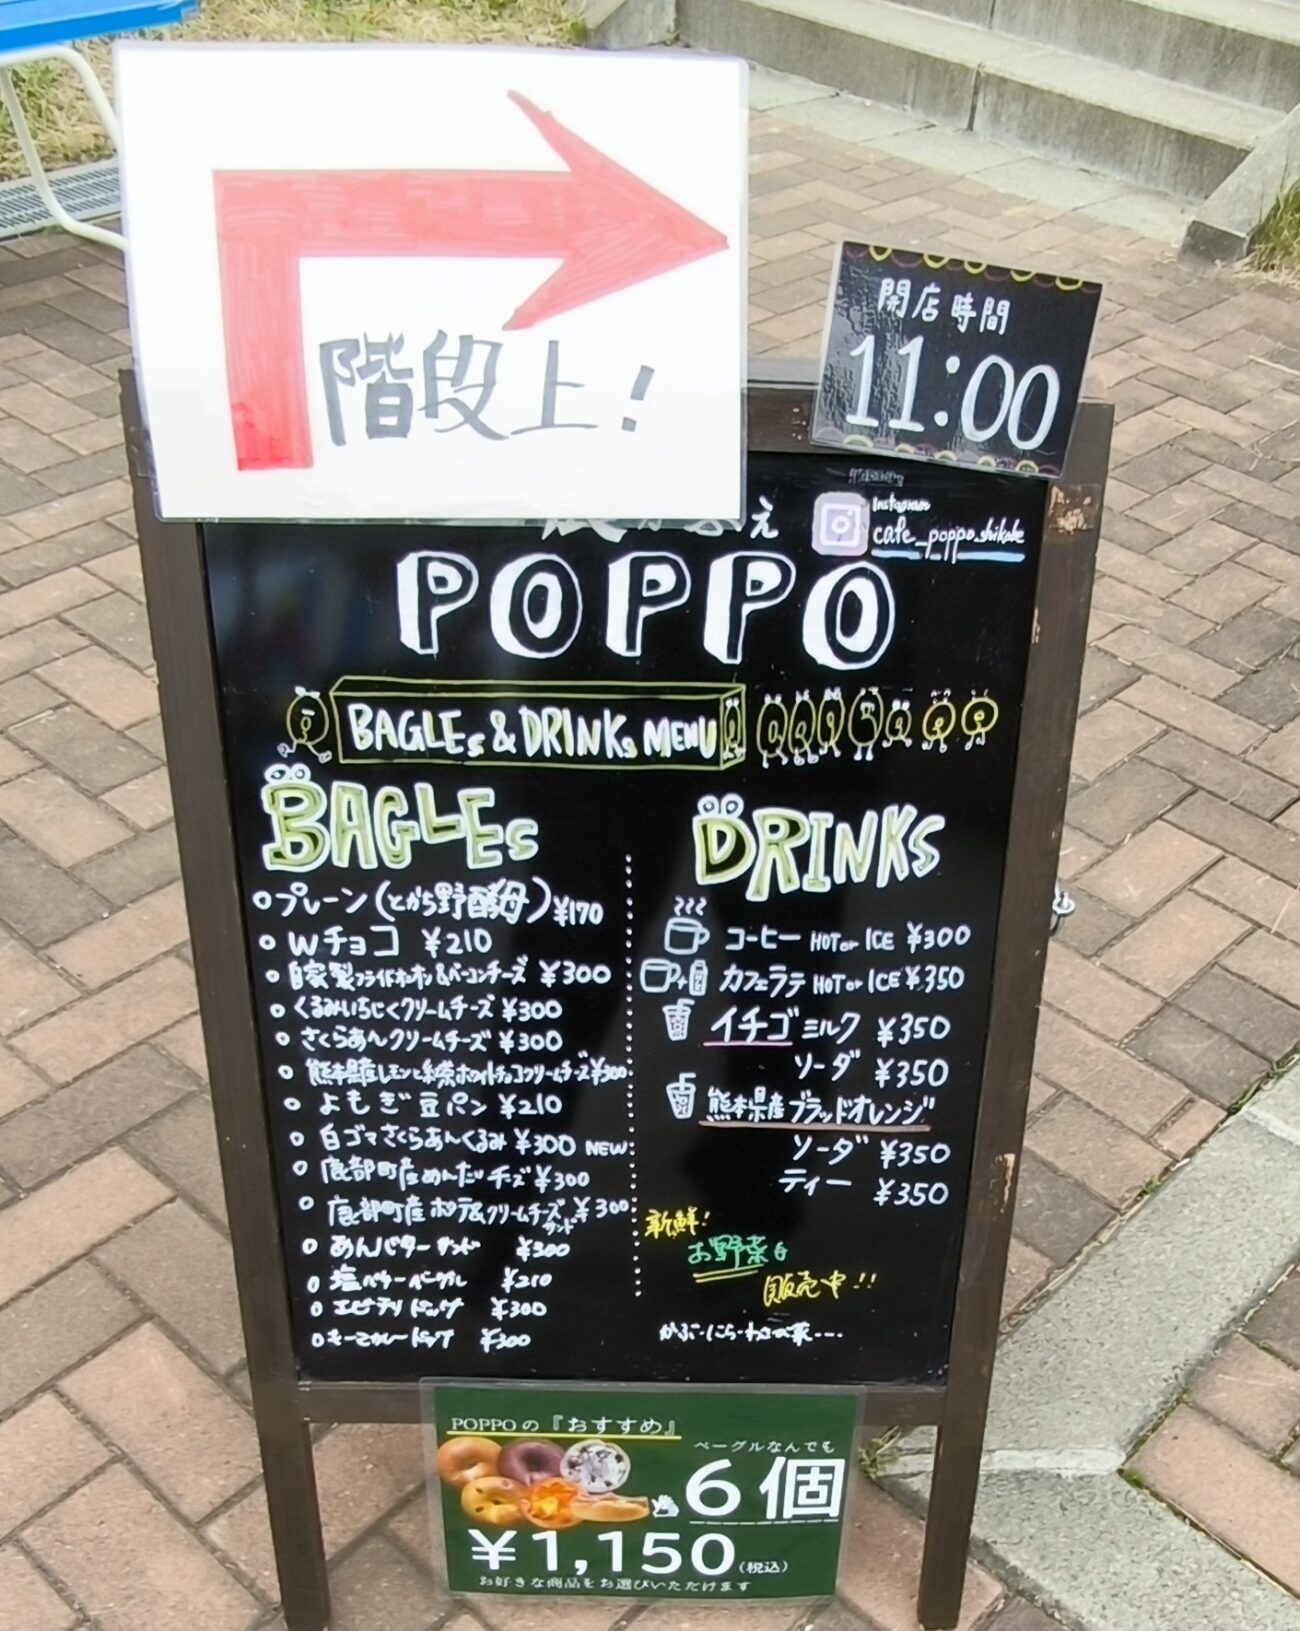 階段上!
開店時間
11:00
え
Instagram
cafe_poppo_shikabe
POPPO
BAGLEs & DRINKs MENU
BAGLEs
プレーン(とかち野酵母) ¥170
Wチョコ ¥210
自家製フライドオニオン&ベーコンチーズ ¥300
くるみいちじくクリームチーズ ¥300
さくらあんクリームチーズ ¥300
熊本県産レモンと緑茶ホワイトチョコクリームチーズ ¥300
よもぎ豆パン ¥210
白ゴマさくらあんくるみ ¥300 NEW
鹿部町産めんたいチーズ ¥300
鹿部町産ポテ&クリームチーズサンド ¥300
あんバターサンド ¥300
塩バターベーグル ¥210
エビチリドッグ ¥300
キーマカレードッグ ¥300
DRINKS
コーヒー HOT or ICE ¥300
カフェラテ HOT or ICE ¥350
イチゴ ミルク ¥350
ソーダ ¥350
熊本県産ブラッドオレンジ
ソーダ ¥350
ティー ¥350
新鮮!
お野菜も
販売中!!
かぶ・にら・わさび菜---
POPPOの『おすすめ』
ベーグルなんでも
6個
¥1,150(税込)
お好きな商品をお選びいただけます